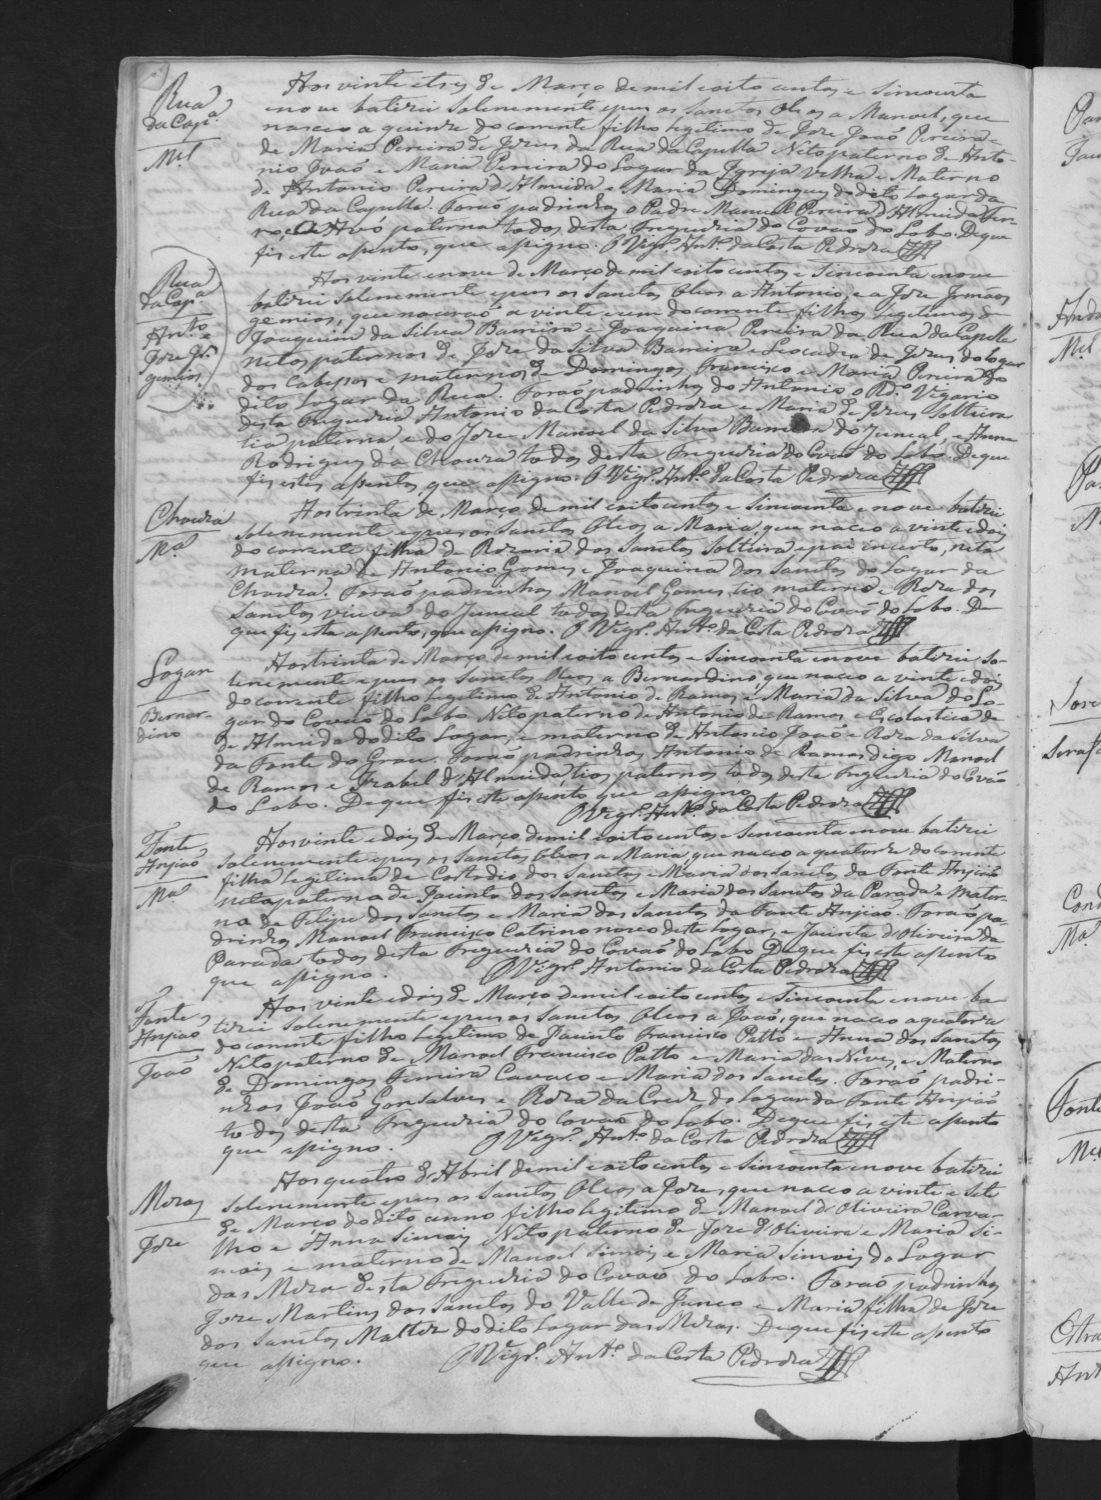 Rua
da Cap.ª
M.el
Aos vinte e tres de Março de mil oito centos e sincoenta
e nove batizei solenemente e pus os Santos Oleos a Manoel, que
nasceo a quinze do corrente filho legitimo de Joze Joaõ Pereira
de Maria Pereira de Jezus da Rua da Capella Neto paterno de Anto-
nio Joaõ e Maria Pereira do Lugar da Igreja Velha e Materno
de Antonio Pereira d'Almeida e Maria Domingues do dito Lugar da
Rua da Capella. Foraõ padrinhos o Padre Manuel Pereira d'Almeida
e Avó paterna todos desta Freguezia do Covaõ do Lobo. De que
fis este aSento, que aSigno. O Vigr.º Ant.º da Costa Pedroza
Rua
da Cap.ª
Ant.º e
Joze Ir.
gemios
Aos vinte e nove de Março de mil oito centos e sincoenta e nove
batizei solenemente e pus os Santos Oleos a Antonio, e a Joze Irmãos
gemios, que nasceraõ a vinte e um do corrente filhos legitimos de
Joaquim da Silva Barreira e Joaquina Pereira da Rua da Capella
netos paternos de Joze da Silva Barreira e Leocadia de Jezus do lugar
dos Cabeços e maternos de Domingos Francisco e Maria Pereira do
dito Lugar da Rua. Foraõ padrinhos do Antonio o Rd.º Vigario
desta Freguezia Antonio da Costa Pedroza e Maria de Jezus Solteira
tia paterna e do Joze Manoel da Silva Barreira do Juncal, e Anna
Rodrigues da Chouza todos desta Freguezia do Covaõ do Lobo. De que
fis estes aSentos, que aSigno. O Vigr.º Ant.º da Costa Pedroza
Chouza
M.ª
Aos trinta de Março de mil oito centos e sincoenta e nove batizei
solenemente e pus os Santos Oleos a Maria, que nasceo a vinte e dois
do corrente filha de Rozaria dos Santos Solteira e pai incerto, neta
materna de Antonio Gomes e Joaquina dos Santos do Lugar da
Chouza. Foraõ padrinhos Manoel Gomes tio materno e Roza dos
Santos viuva do Juncal todos desta Freguezia do Covaõ do Lobo. De
que fis este aSento, que aSigno. O Vigr.º Ant.º da Costa Pedroza
Logar
Bernar-
dino
Aos trinta de Março de mil oito centos e sincoenta e nove batizei so-
lenemente e pus os Santos Oleos a Bernardino, que nasceo a vinte e dois
do corrente filho legitimo de Antonio de Ramos e Maria da Silva do Lo-
gar do Covaõ do Lobo Neto paterno de Antonio de Ramos, e Escolastica de
de Almeida do dito Logar, e materno de Antonio Joaõ e Roza da Silva
da Fonte do Grou. Foraõ padrinhos Antonio de Ramos digo Manoel
de Ramos e Izabel d'Almeida, tios paternos todos desta Freguezia do Covaõ
do Lobo. De que fis este aSento que aSigno.
O Vigr.º Ant.º da Costa Pedroza
Fonte
Anjiaõ
M.ª
Aos vinte e dois de Março de mil oito centos e sincoenta e nove batizei
solenemente e pus os Santos Oleos a Maria, que nasceo a quatorze do corrente
filha legitima de Custodio dos Santos e Maria dos Santos da Fonte Anjiaõ
neta paterna de Jacinto dos Santos e Maria dos Santos da Parada e Mater-
na de Felipe dos Santos e Maria dos Santos da Fonte Anjiaõ. Foraõ pa-
drinhos Manoel Francisco Catrino novo deste Logar, e Jacinta d'Oliveira da
Parada todos desta Freguezia do Covaõ do Lobo. De que fis este aSento
que aSigno. O Vigr.º Antonio da Costa Pedroza
Fonte
Anjiaõ
Joaõ
Aos vinte e dois de Março de mil oito centos e sincoenta e nove ba-
tizei solenemente e pus os Santos Oleos a Joaõ, que nasceo a quatorze
do corrente filho legitimo de Jacinto Francisco Patto e Anna dos Santos
Neto paterno de Manoel Francisco Patto e Maria das Neves, e Materno
de Domingos Ferreira Cavaco e Maria dos Santos. Foraõ padri-
nhos Joaõ Gonsalves e Roza da Cruz do Logar da Fonte Anjiaõ
todos desta Freguezia do Covaõ do Lobo. De que fis este aSento
que aSigno. O Vigr.º Ant.º da Costa Pedroza
Mezas
Joze
Aos quatro de Abril de mil oito centos e sincoenta e nove batizei
solenemente e pus os Santos Oleos a Joze, que nasceo a vinte e sete
de Março do dito anno filho legitimo de Manoel d'Oliveira Carva-
lho e Anna Simois Neto paterno de Joze d'Oliveira e Maria Si-
mois e materno de Manoel Simois e Maria Simois do Logar
das Mezas desta Freguezia do Covaõ do Lobo. Foraõ padrinhos
Joze Martins dos Santos do Valle de Junco e Maria filha de Joze
dos Santos Malter do dito Logar das Mezas. De que fis este aSento
que aSigno. O Vigr.º Ant.º da Costa Pedroza